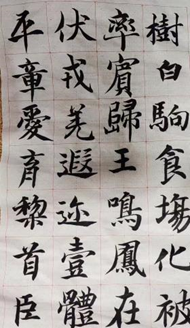 平章愛育黎首臣
伏戎羌遐迩壹體
率賓歸王鳴鳳在
樹白駒食塲化被